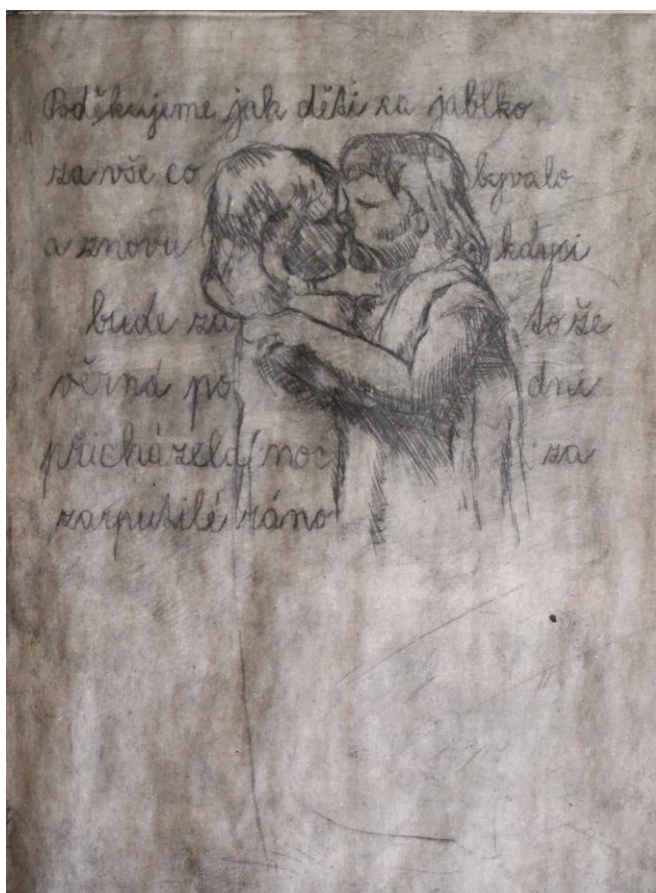 Poděkujeme jak děti za jablko
za vše co bývalo
a znovu kdysi
bude za to že
věrná po dni
přicházela noc za
zarputilé ráno